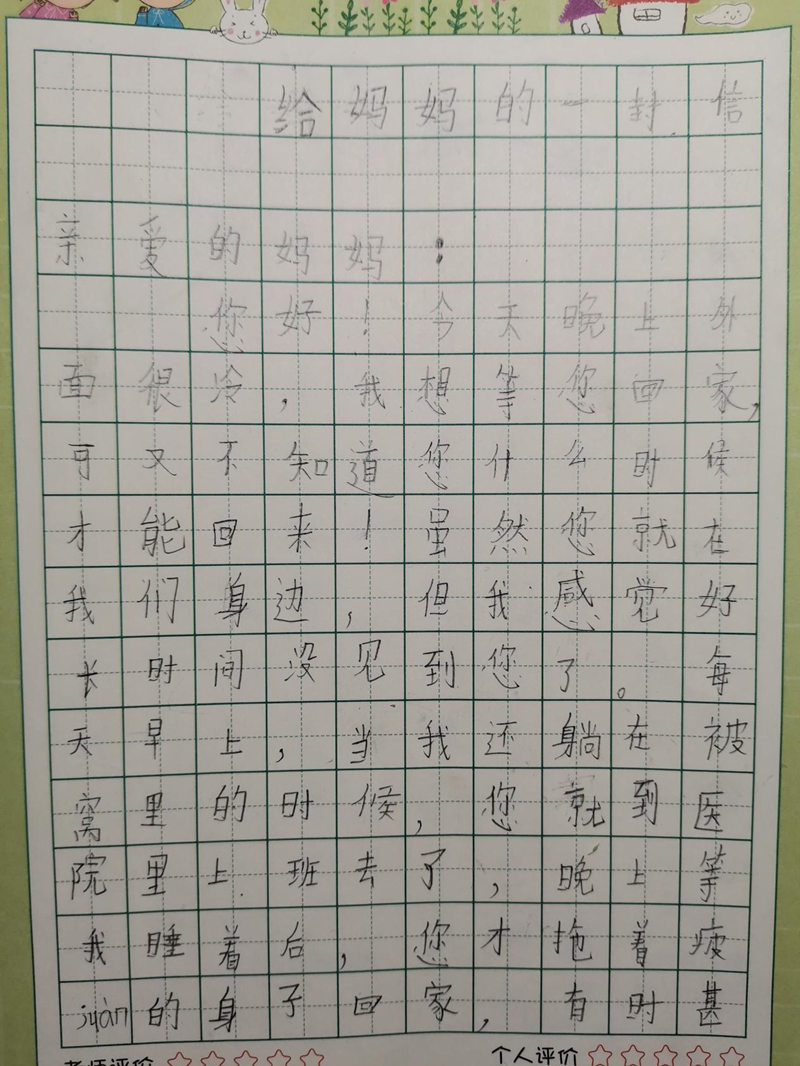 给妈妈的一封信
亲爱的妈妈：
您好！今天晚上外
面很冷，我想等您回家，
可又不知道您什么时候
才能回来！虽然您就在
我们身边，但我感觉好
长时间没见到您了。每
天早上，当我还躺在被
窝里的时候，您就到医
院里上班去了，晚上等
我睡着后，您才拖着疲
juàn的身子回家，有时甚
老师评价 个人评价